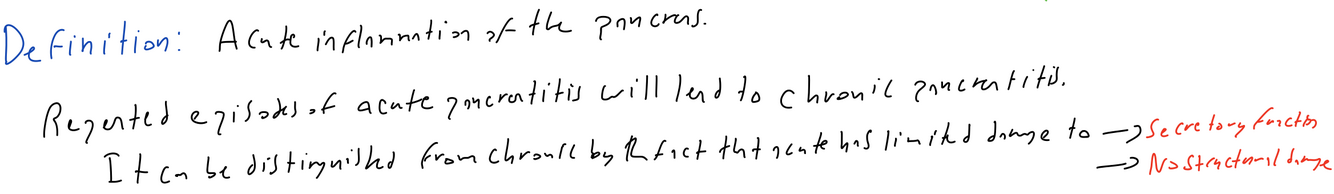 Definition: Acute inflammation of the pancreas.
Repeated episodes of acute pancreatitis will lead to chronic pancreatitis.
It can be distinguished from chronic by the fact that acute has limited damage to → Secretory function
→ No structural damage